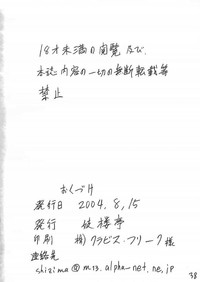 18才未満の閲覧及び
本誌内容の一切の無断転載等
禁止
おくづけ
発行日 2004,8,15
発行 使楼亭
印刷 (株)クラビス・フリーク様
連絡先
shizima@m13.alpha-net.ne.jp
38